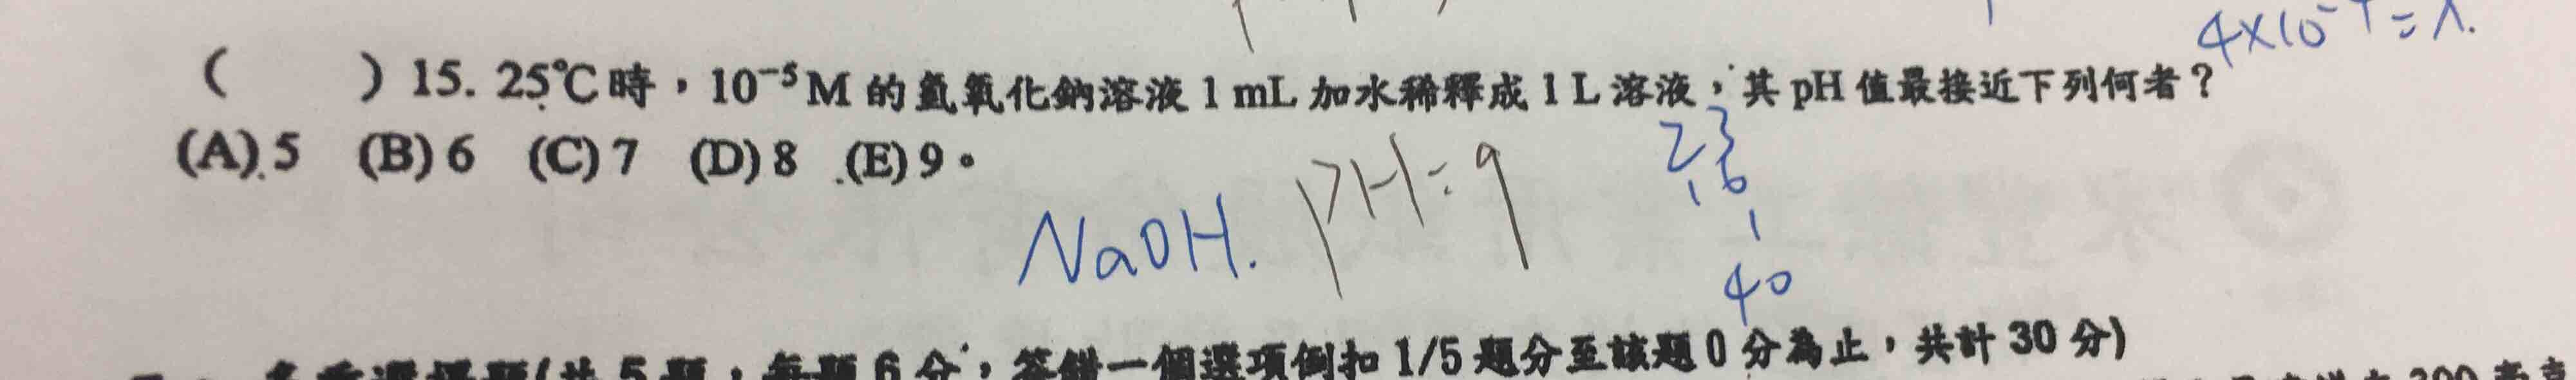 4×10
( ) 15. 25℃時，10⁻⁵M 的氫氧化鈉溶液 1 mL 加水稀釋成 1 L 溶液，其 pH 值最接近下列何者？
(A) 5 (B) 6 (C) 7 (D) 8 (E) 9。
23
16
1
40
NaOH. PH=9
(共 5 題，每題 6 分，答錯一個選項倒扣 1/5 題分至該題 0 分為止，共計 30 分)